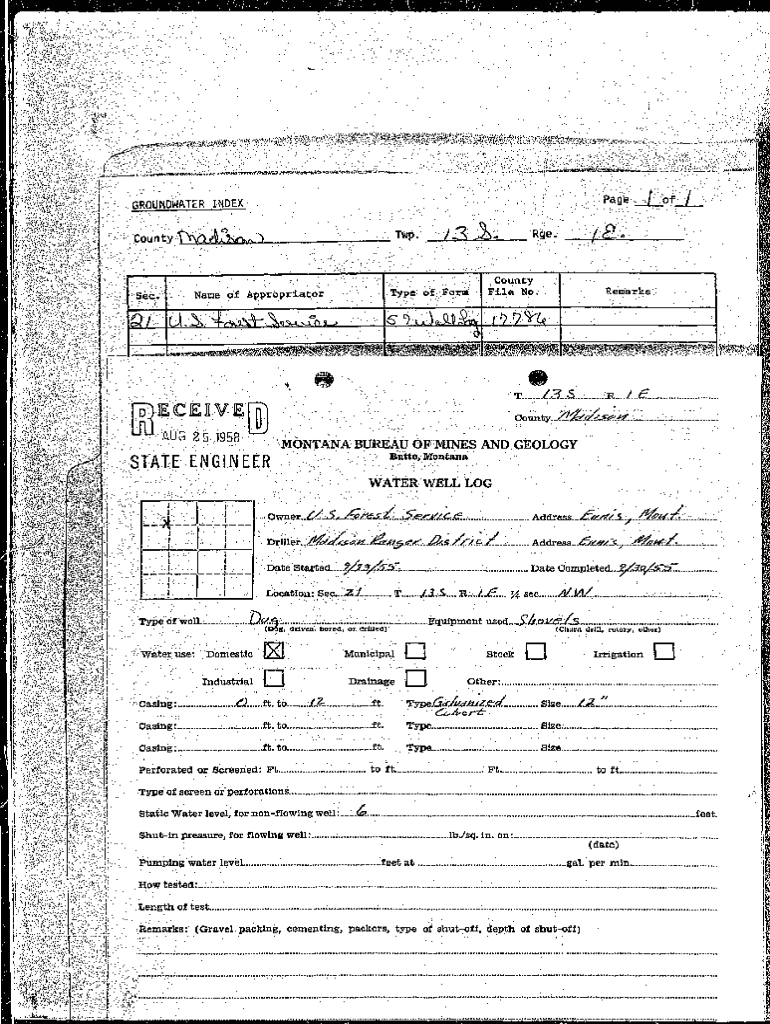 GROUNDWATER INDEX Page 1 of 1
County Madison Twp. 13 S. Rge. 1E.
Sec. Name of Appropriator Type of Form County File No. Remarks
21 U.S. Forest Service Well Log 17786
T 13 S R 1 E
County Madison
RECEIVED
AUG 25 1958
STATE ENGINEER
MONTANA BUREAU OF MINES AND GEOLOGY
Butte, Montana
WATER WELL LOG
Owner U.S. Forest Service Address Ennis, Mont.
Driller Madison Ranger District Address Ennis, Mont.
Date Started Date Completed
Location: Sec. 21 T 13 S R 1 E ¼ sec. NW
Type of well Dug Equipment used Shovels
(Dug, driven, bored, or drilled) (Churn drill, rotary, other)
Water use: Domestic X Municipal Stock Irrigation
Industrial Drainage Other:
Casing: 0 ft. to 12 ft. Type Galvanized Culvert Size 12"
Casing: ft. to ft. Type Size
Casing: ft. to ft. Type Size
Perforated or Screened: Ft. to ft. Ft. to ft.
Type of screen or perforations
Static Water level, for non-flowing well: 6 feet.
Shut-in pressure, for flowing well: lb./sq. in. on:
(date)
Pumping water level feet at gal. per min.
How tested:
Length of test
Remarks: (Gravel packing, cementing, packers, type of shut-off, depth of shut-off)